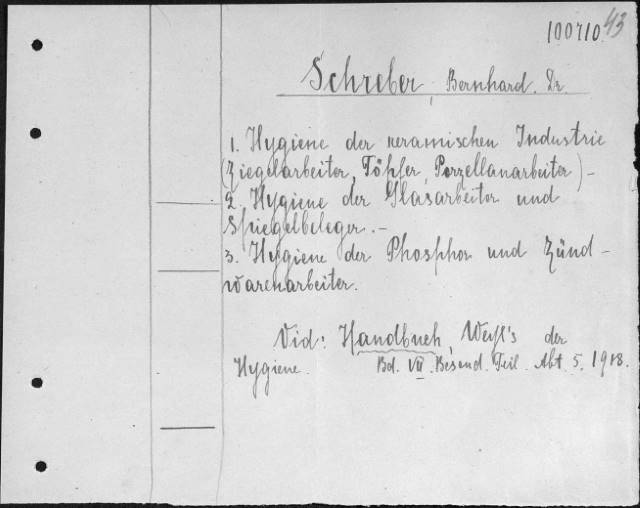 100710 43
Schreber, Bernhard. Dr.
1. Hygiene der keramischen Industrie
(Ziegelarbeiter, Töpfer, Porzellanarbeiter) -
2. Hygiene der Glasarbeiter und
Spiegelbeleger. -
3. Hygiene der Phosphor und Zünd-
warenarbeiter.
Vid: Handbuch, Weyl's der
Hygiene. Bd. VII. Besond. Teil. Abt. 5. 1918.